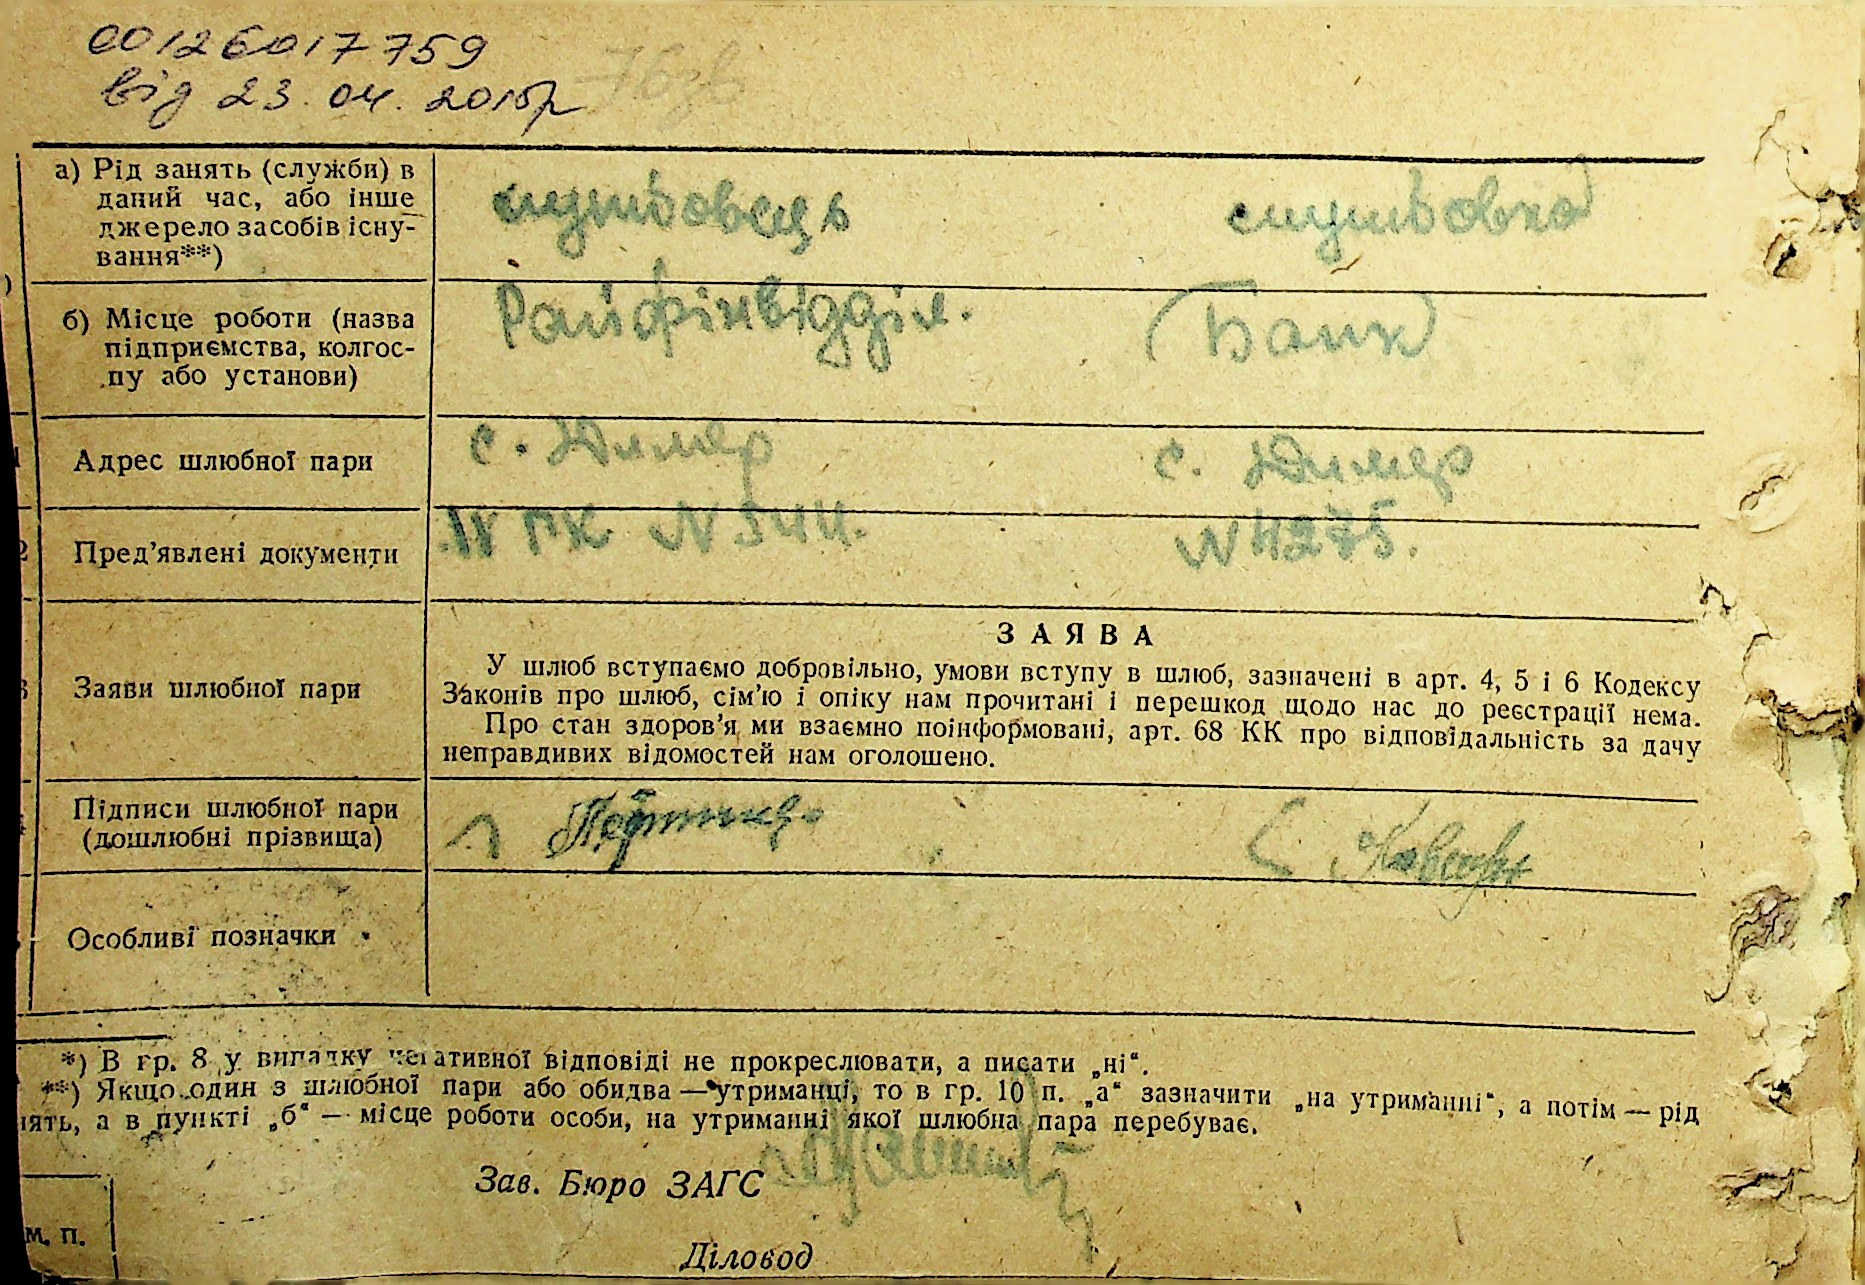 00126017759
від 23.04.2015р
а) Рід занять (служби) в
даний час, або інше
джерело засобів існу-
вання**)
службовець
службовка
б) Місце роботи (назва
підприємства, колгос-
пу або установи)
Райфінвідділ.
Банк
Адрес шлюбної пари
с. Димер
с. Димер
Пред’явлені документи
N 344.
N 4275.
Заяви шлюбної пари
ЗАЯВА
У шлюб вступаємо добровільно, умови вступу в шлюб, зазначені в арт. 4, 5 і 6 Кодексу
Законів про шлюб, сім’ю і опіку нам прочитані і перешкод щодо нас до реєстрації нема.
Про стан здоров’я ми взаємно поінформовані, арт. 68 КК про відповідальність за дачу
неправдивих відомостей нам оголошено.
Підписи шлюбної пари
(дошлюбні прізвища)
Особливі позначки
*) В гр. 8 у випадку негативної відповіді не прокреслювати, а писати „ні“.
**) Якщо один з шлюбної пари або обидва — утриманці, то в гр. 10 п. „а“ зазначити „на утриманні“, а потім — рід
нять, а в пункті „б“ — місце роботи особи, на утриманні якої шлюбна пара перебуває.
Зав. Бюро ЗАГС
М. П.
Діловод